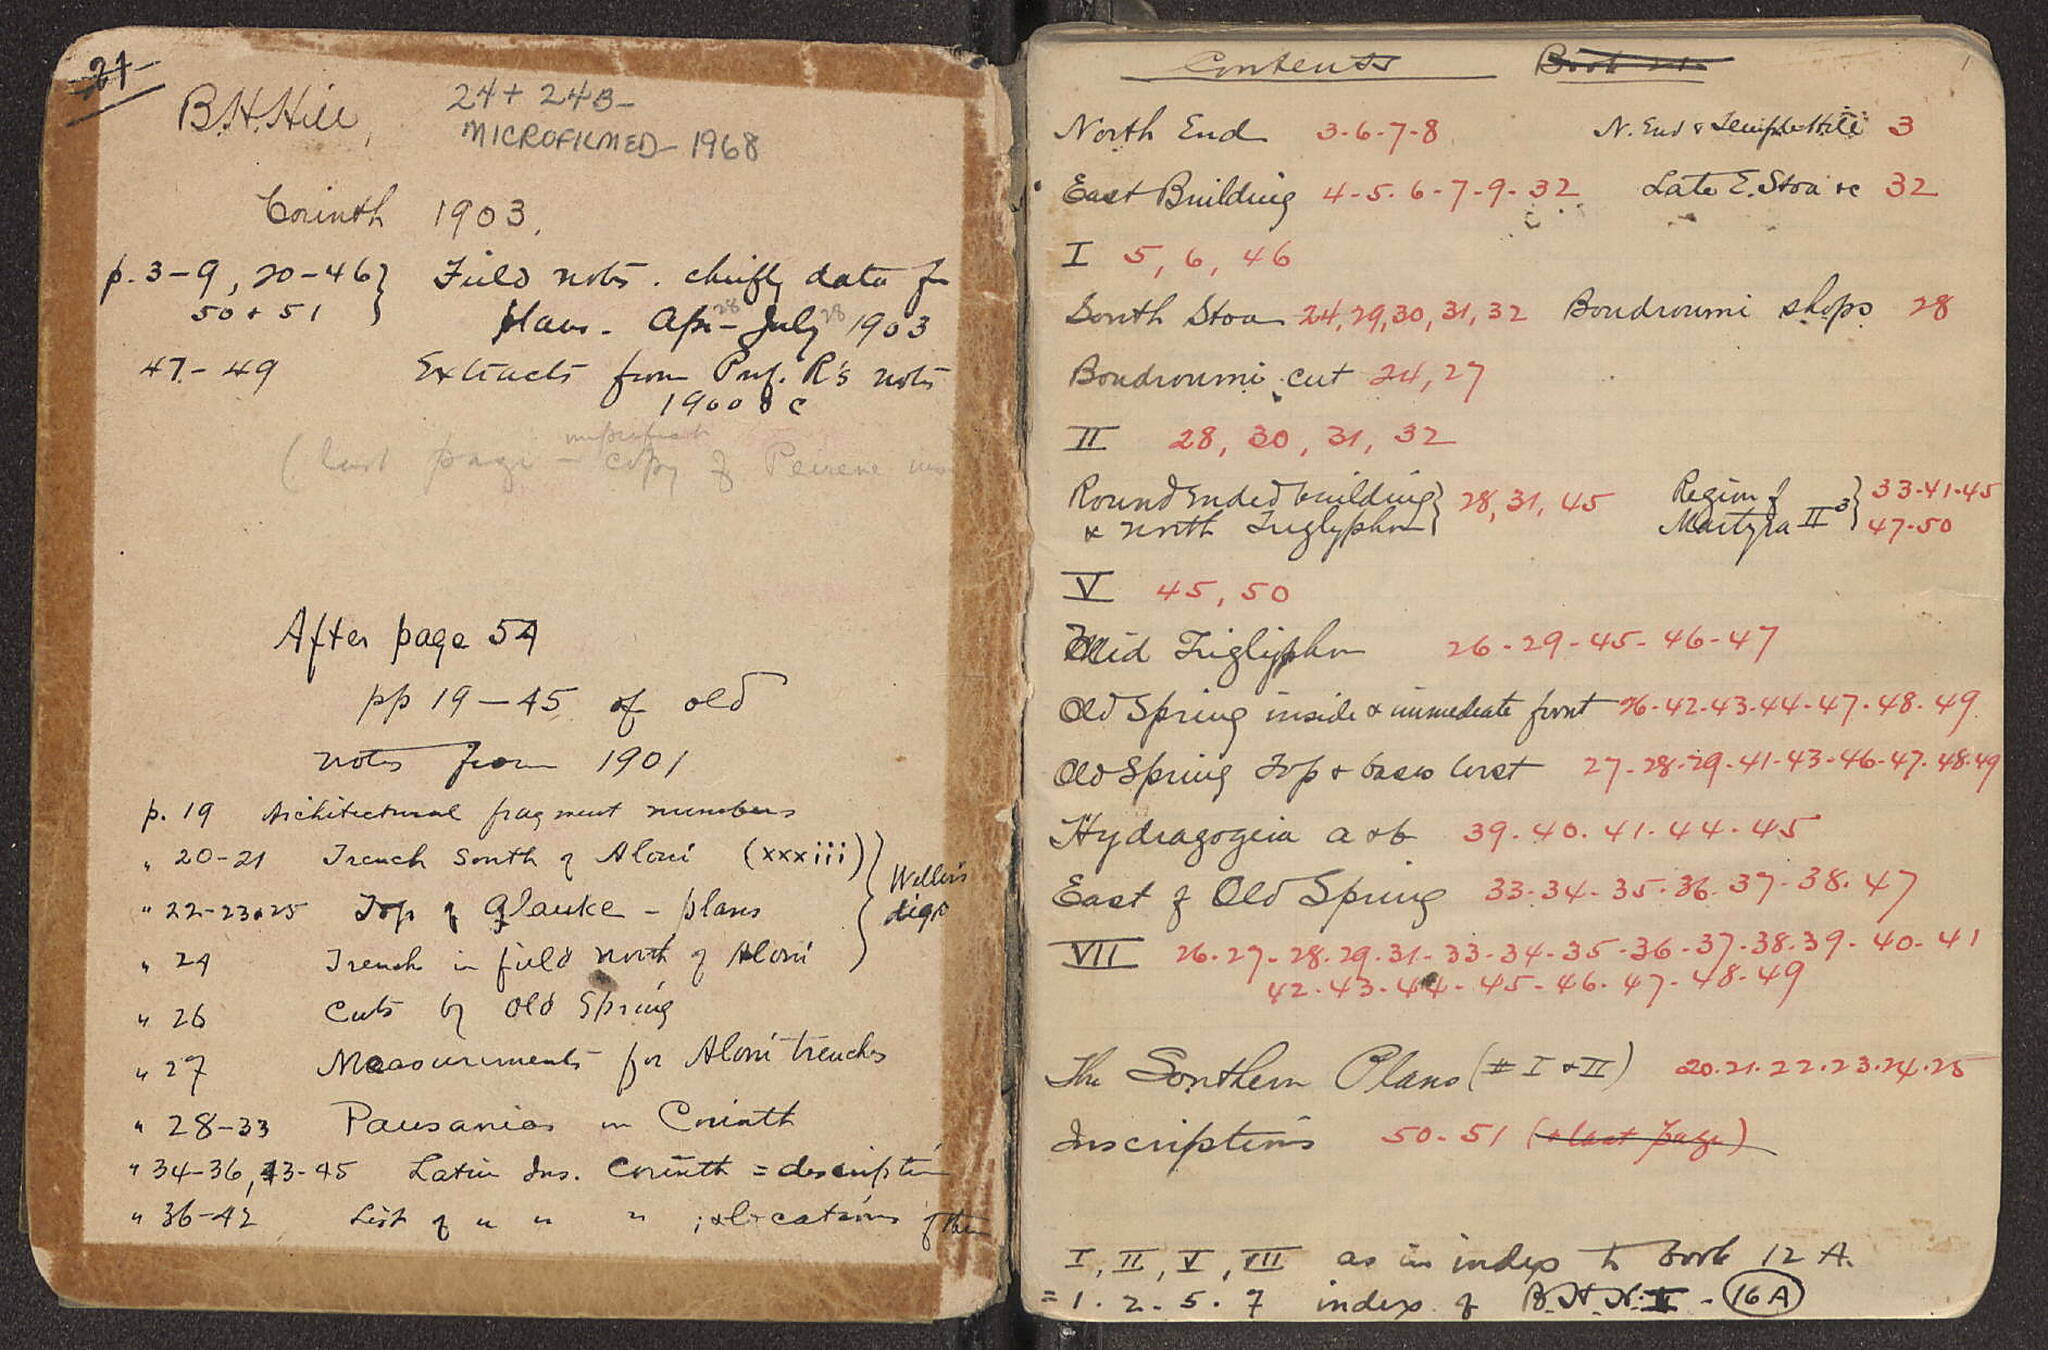 21
B.H.Hill,
24 + 24B-
MICROFILMED- 1968
Corinth 1903.
p. 3-9, 20-46 } Field notes. chiefly data for
50 + 51 plans - Apr 28 - July 28 1903
47-49 Extracts from Prof. R's notes
1900 &c
imperfect
(last page - copy of Peirene
After page 54
pp 19-45 of old
notes from 1901
p. 19 Architectural fragment numbers
" 20-21 Trench South of Aloni (xxxiii) } Weller's
" 22-23+25 Top of Glauke - plans digs
" 24 Trench in field north of Aloni
" 26 Cuts by Old Spring
" 27 Measurements for Aloni trenches
" 28-33 Pausanias on Corinth
" 34-36, 43-45 Latin Ins. Corinth = description
" 36-42 List of " " " ; & locations of them
Contents Book 21. 1
North End 3-6-7-8 N. End & Temple Hill 3
East Building 4-5-6-7-9-32 Late E. Stoa &c 32
I 5, 6, 46
South Stoa 24, 29, 30, 31, 32 Boudroumi shops 28
Boudroumi cut 24, 27
II 28, 30, 31, 32
Round ended building } 28, 31, 45 Region of } 33-41-45
& north Triglyphon Martyra II 3 47-50
V 45, 50
Mid Triglyphon 26-29-45-46-47
Old Spring inside & immediate front 26-42-43-44-47-48-49
Old Spring Top & bases west 27-28-29-41-43-46-47-48-49
Hydragogeia a & b 39-40-41-44-45
East of Old Spring 33-34-35-36-37-38-47
VII 26-27-28-29-31-33-34-35-36-37-38-39-40-41
42-43-44-45-46-47-48-49
The Southern Plans (# I & II) 20-21-22-23-24-25
Inscriptions 50-51 (& last page)
I, II, V, VII as in index to book 12 A.
= 1. 2. 5. 7 index of B.H.H. II - 16A